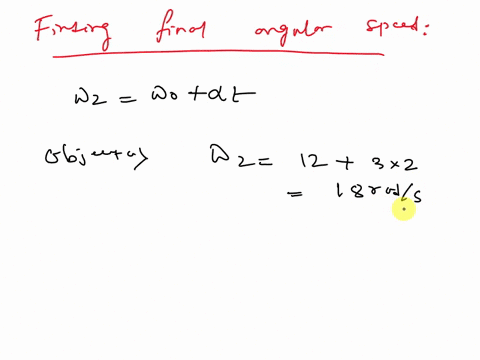 Finding final angular speed:
ω2 = ω0 + αt
ω2 = 12 + 3×2
= 18 rad/s